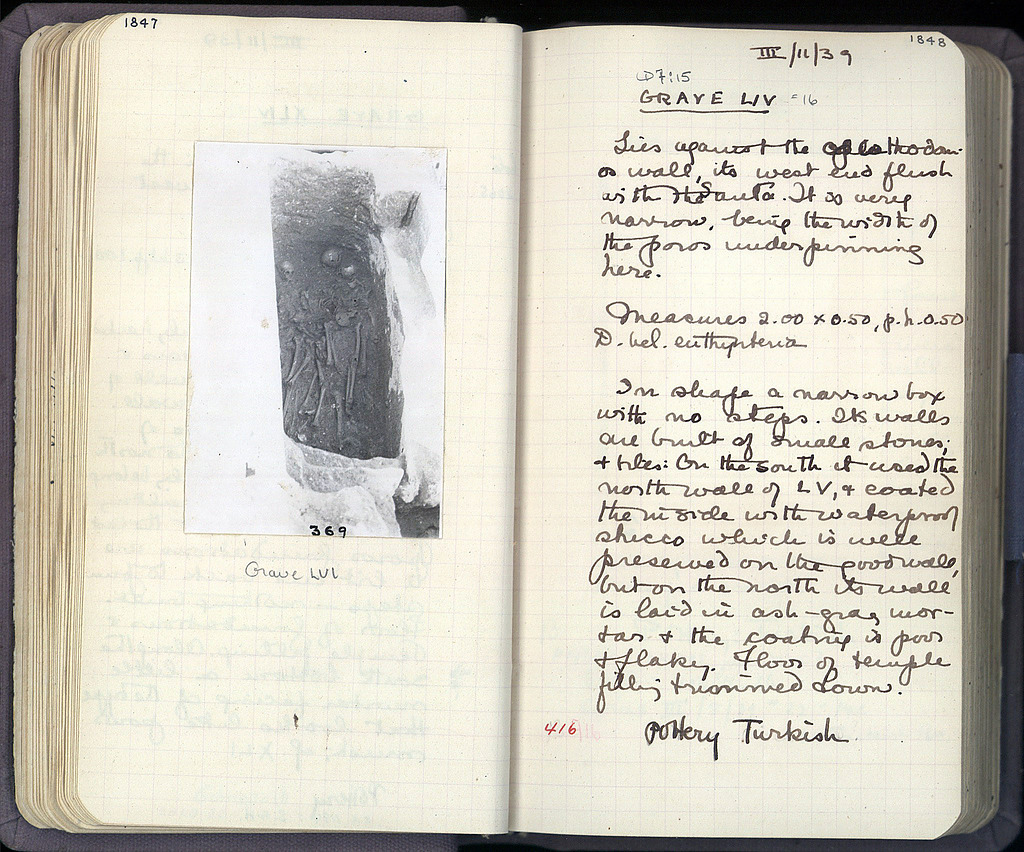 1847
369
Grave LVI
1848
III/11/39
D7:15
GRAVE LIV = 16
Lies against the opisthodom-
os wall, its west end flush
with the S anta. It is very
narrow, being the width of
the poros underpinning
here.
Measures 2.00 x 0.50, p.h. 0.50
D. bel. euthynteria
In shape a narrow box
with no steps. Its walls
are built of small stones,
+ tiles: On the south it used the
north wall of LV, + coated
the inside with waterproof
stucco which is well
preserved on the good wall,
but on the north its wall
is laid in ash-gray mor-
tar + the coating is poor
+ flaky. Floor of temple
filling trimmed down.
416 Pottery Turkish